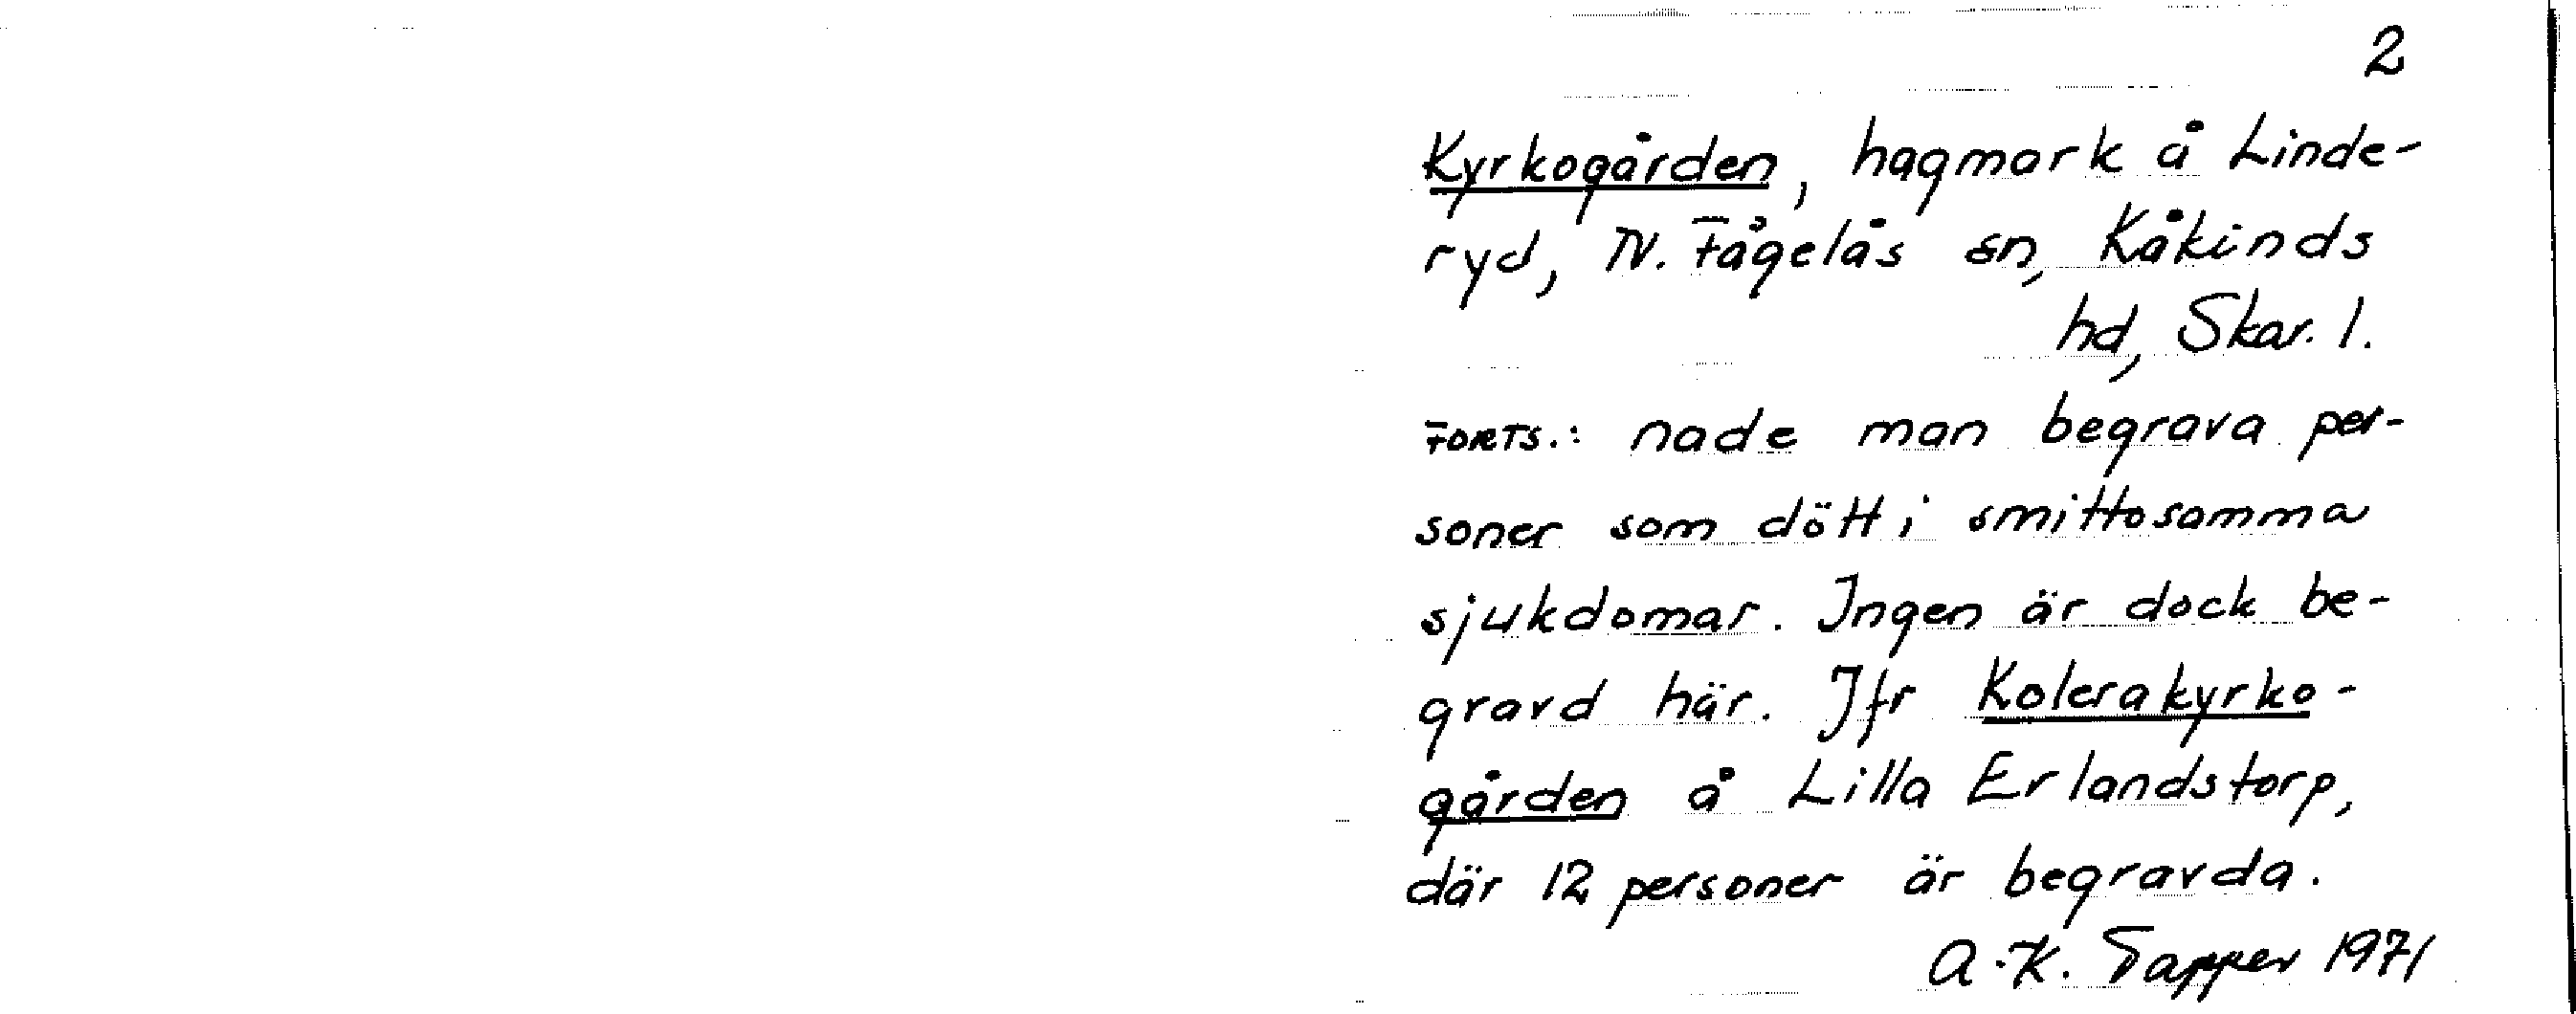 2
Kyrkogården, hagmark å Linde-
ryd, N. Fågelås sn, Kåkinds
hd, Skar. l.
FORTS.: nade man begrava per-
soner som dött i smittosamma
sjukdomar. Ingen är dock be-
gravd här. Jfr Kolerakyrko-
gården å Lilla Erlandstorp,
där 12 personer är begravda.
A.-K. Tapper 1971